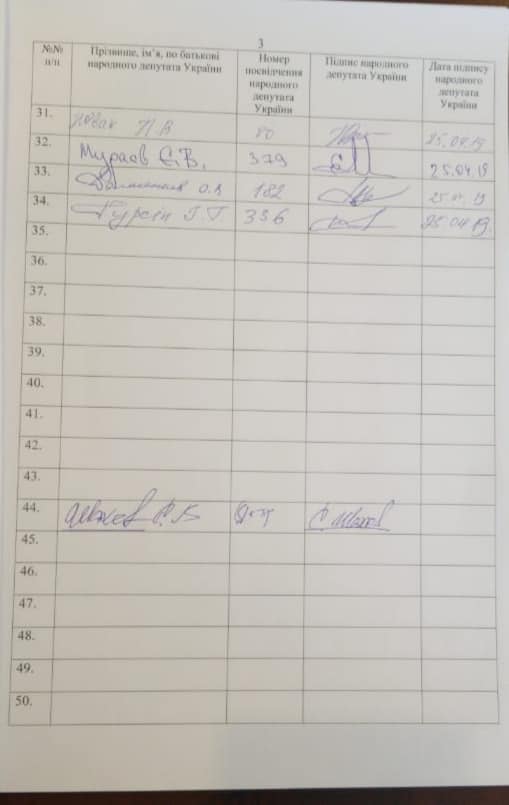 3
№№ п/п
Прізвище, ім'я, по батькові народного депутата України
Номер посвідчення народного депутата України
Підпис народного депутата України
Дата підпису народного депутата України
31. Новак Н.В 80 25.04.19
32. Мураєв Є.В. 379 25.04.19
33. О.В 182 19
34. Г.Г 336 25.04.19.
35.
36.
37.
38.
39.
40.
41.
42.
43.
44.
45.
46.
47.
48.
49.
50.